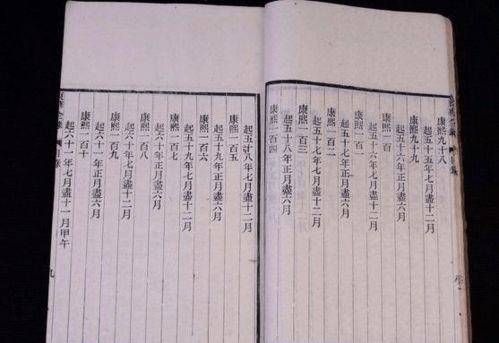 康熙九十八
起五十五年七月盡十二月
康熙九十九
起五十六年正月盡六月
康熙一百
起五十六年七月盡十二月
康熙一百一
起五十七年正月盡六月
康熙一百二
起五十七年七月盡十二月
康熙一百三
起五十八年正月盡六月
康熙一百四
起五十八年七月盡十二月
康熙一百五
起五十九年正月盡六月
康熙一百六
起五十九年七月盡十二月
康熙一百七
起六十年正月盡六月
康熙一百八
起六十年七月盡十二月
康熙一百九
起六十一年正月盡六月
康熙一百十
起六十一年七月盡十一月甲午
九